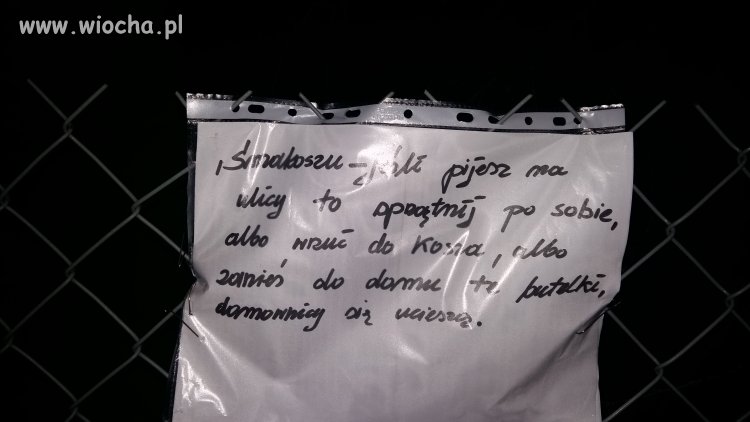 www.wiocha.pl
"Smakoszu – jeśli pijesz na
ulicy to sprzątnij po sobie,
albo wrzuć do kosza, albo
zanieś do domu te butelki,
domownicy się ucieszą.